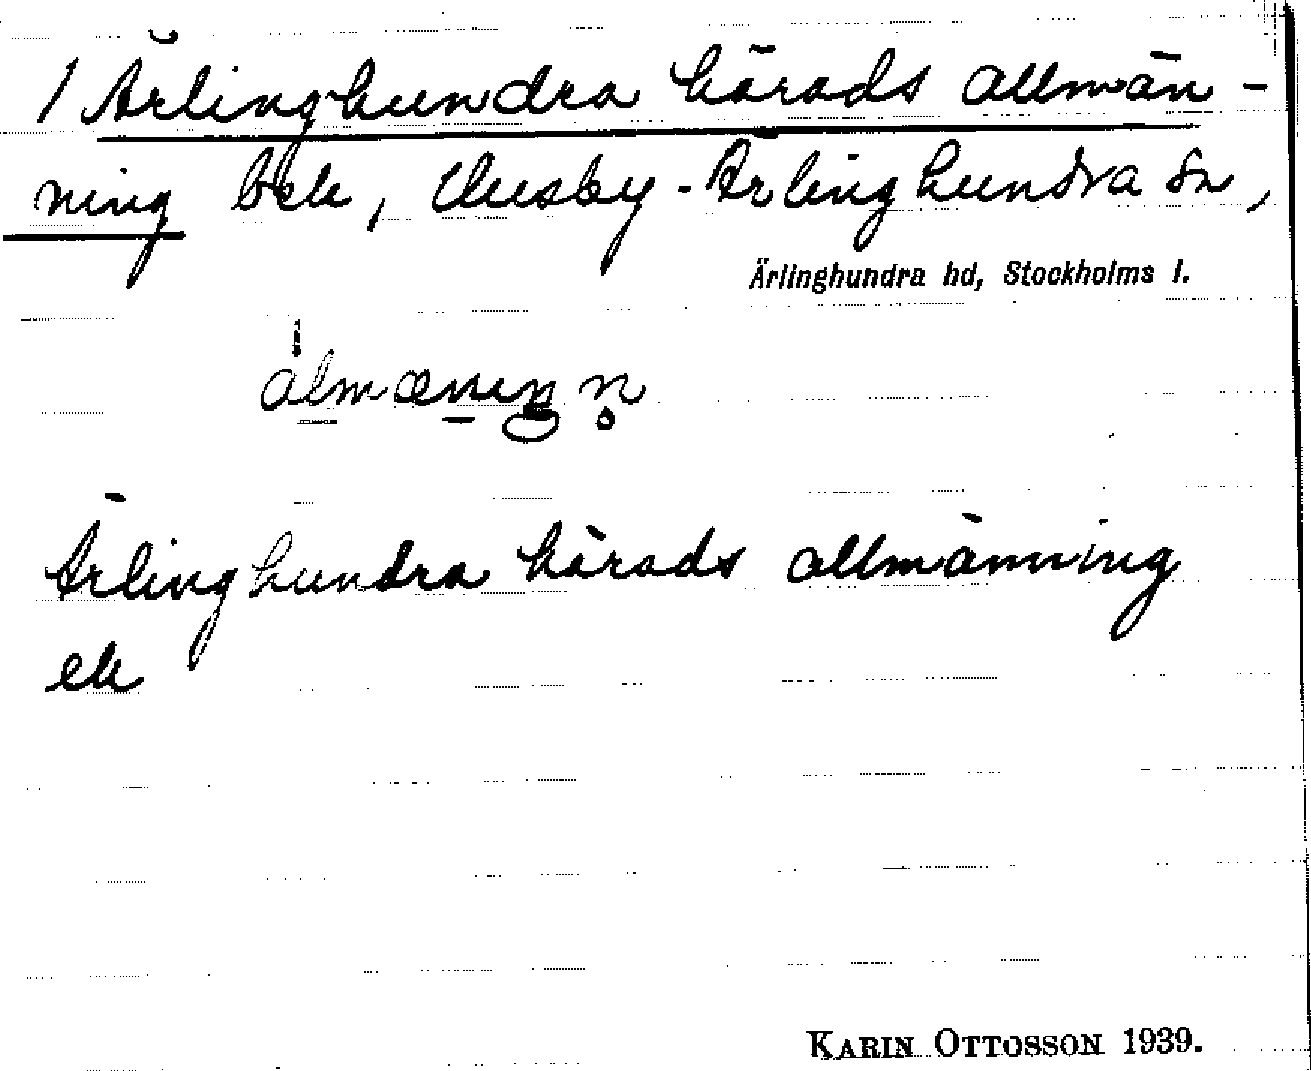 1 Ärlinghundra härads allmän-
ning bek, Husby-Ärlinghundra sn,
Ärlinghundra hd, Stockholms l.
álmænıŋn̥
Ärlinghundra härads allmänning
ek
KARIN OTTOSSON 1939.